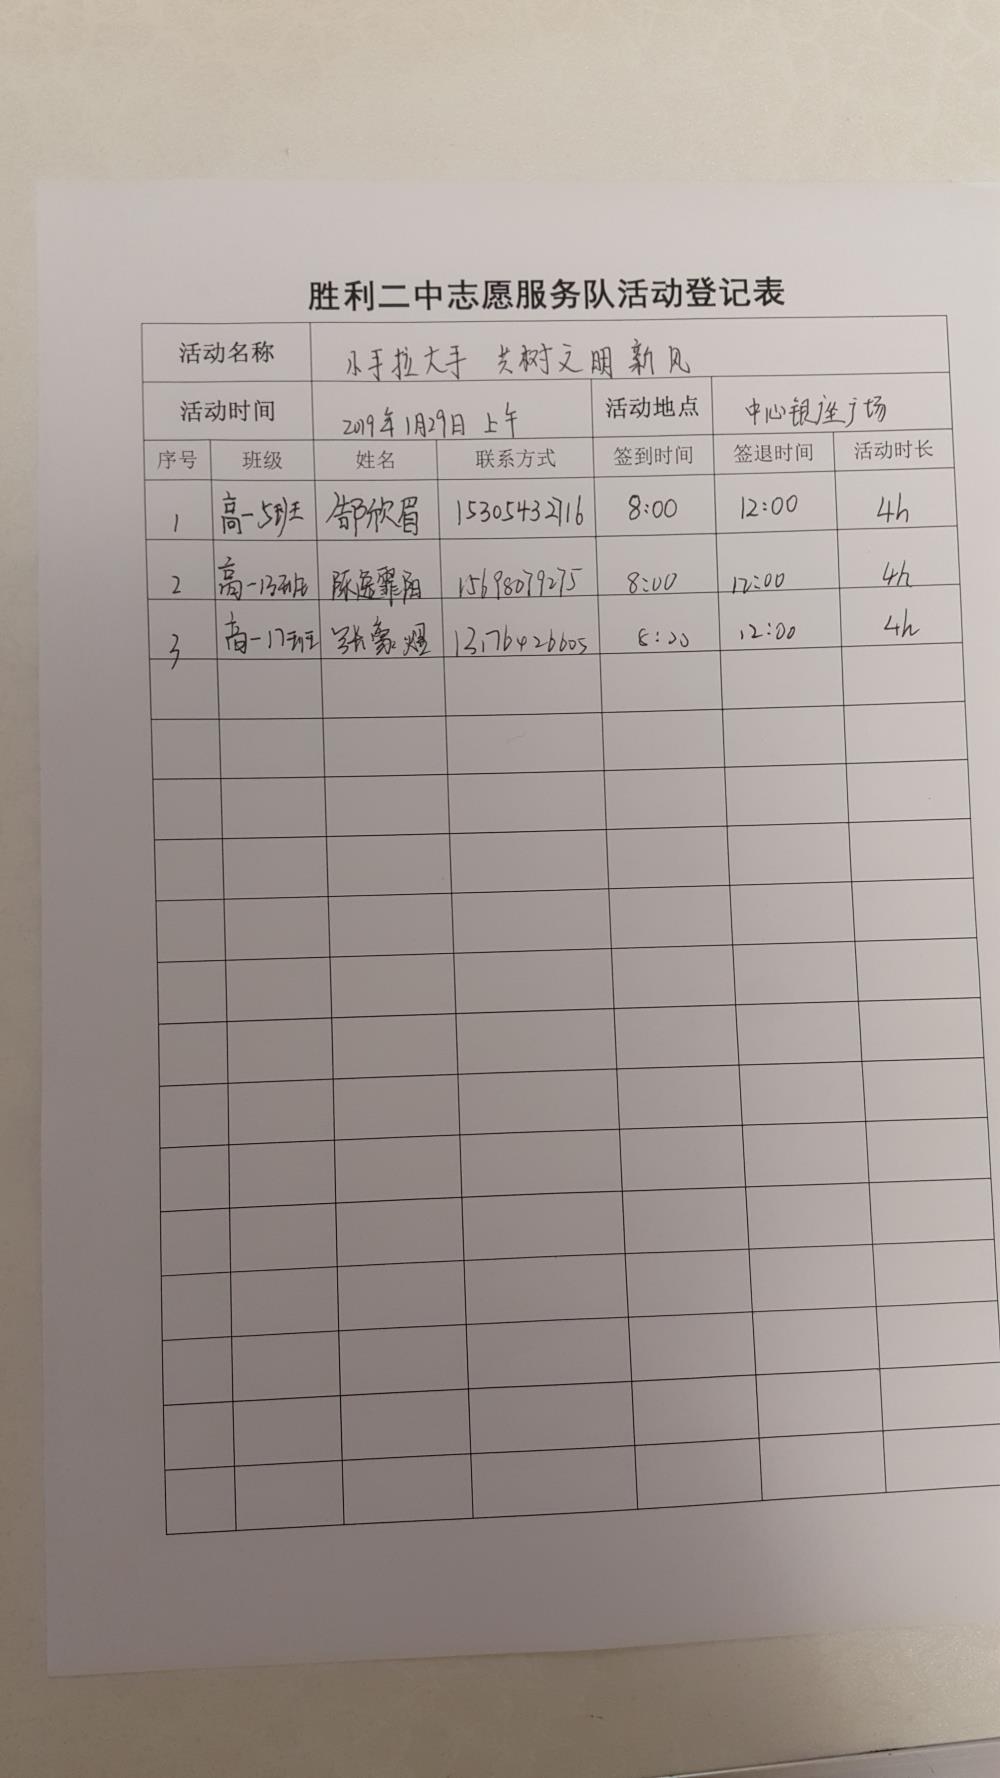 胜利二中志愿服务队活动登记表
活动名称 小手拉大手 共树文明新风
活动时间 2019年1月29日 上午 活动地点 中心银座广场
序号 班级 姓名 联系方式 签到时间 签退时间 活动时长
1 高一5班 郜欣眉 15305432716 8:00 12:00 4h
2 高一13班 陈逸霏阳 15698079275 8:00 12:00 4h
3 高一17班 张家煜 13176426605 8:20 12:00 4h